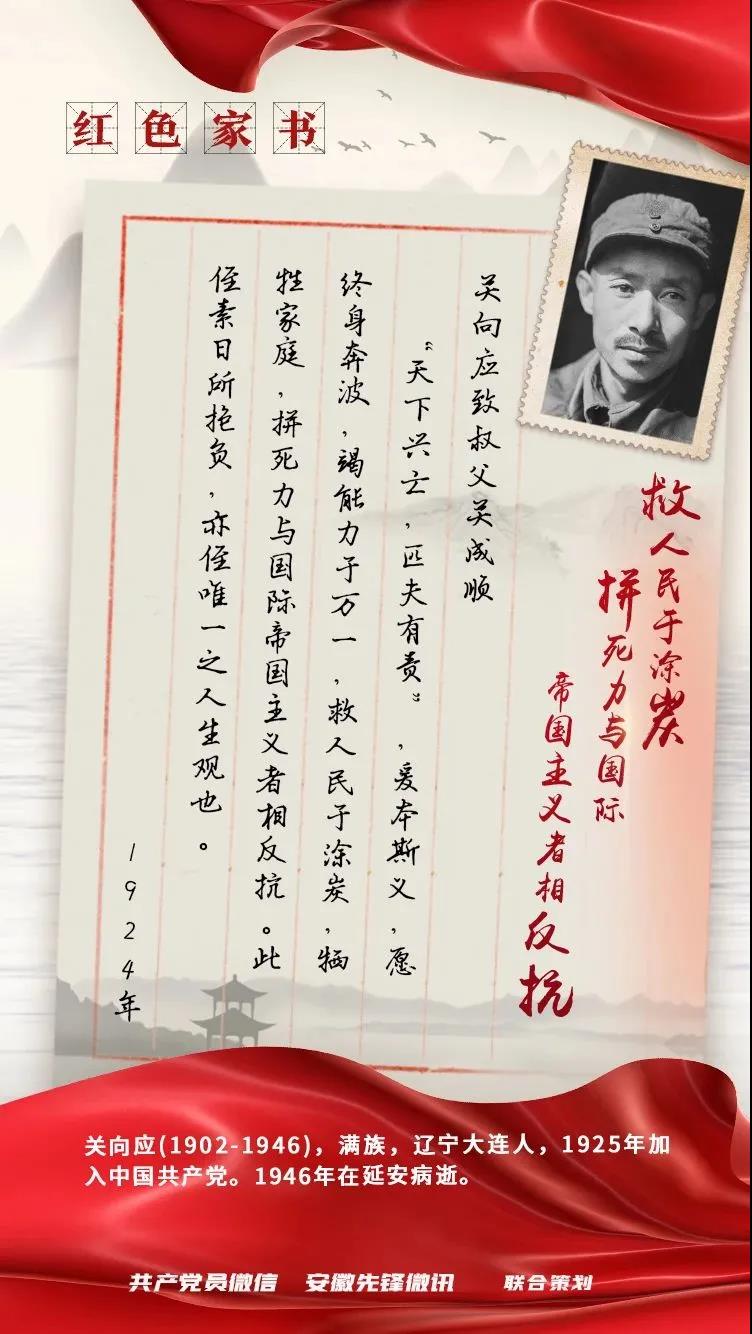 红色家书
救人民于涂炭
拼死力与国际
帝国主义者相反抗
关向应致叔父关成顺
“天下兴亡，匹夫有责”，爰本斯义，愿
终身奔波，竭能力于万一，救人民于涂炭，牺
牲家庭，拼死力与国际帝国主义者相反抗。此
侄素日所抱负，亦侄唯一之人生观也。
1924年
关向应(1902-1946)，满族，辽宁大连人，1925年加
入中国共产党。1946年在延安病逝。
共产党员微信 安徽先锋微讯 联合策划